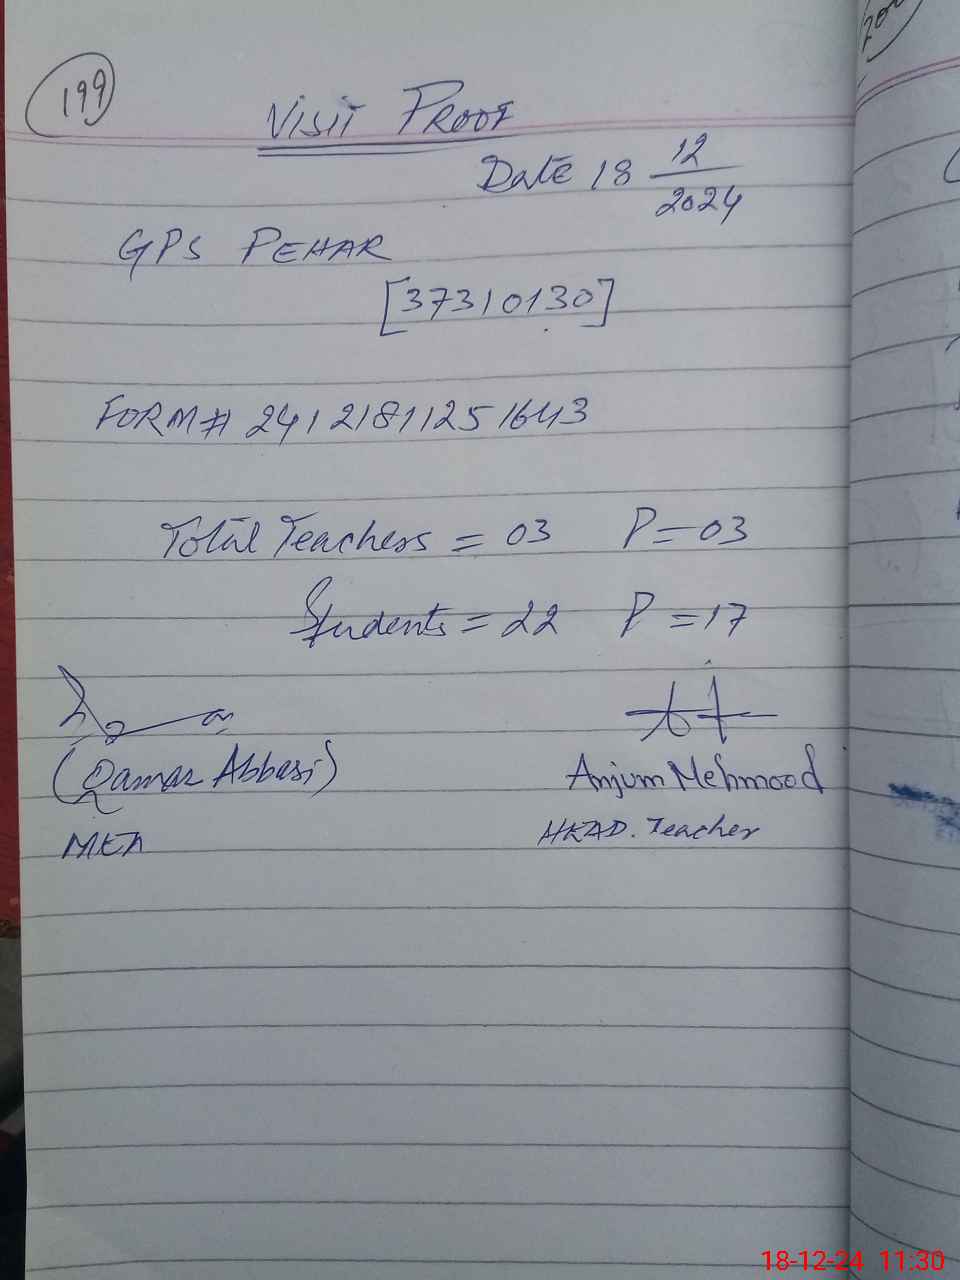 199
Visit Proof
Date 18 12/2024
GPS PEHAR
[37310130]
FORM# 24121811251643
Total Teachers = 03 P=03
Students = 22 P=17
(Qamar Abbasi)
Anjum Mehmood
MEA
HEAD. Teacher
18-12-24 11:30